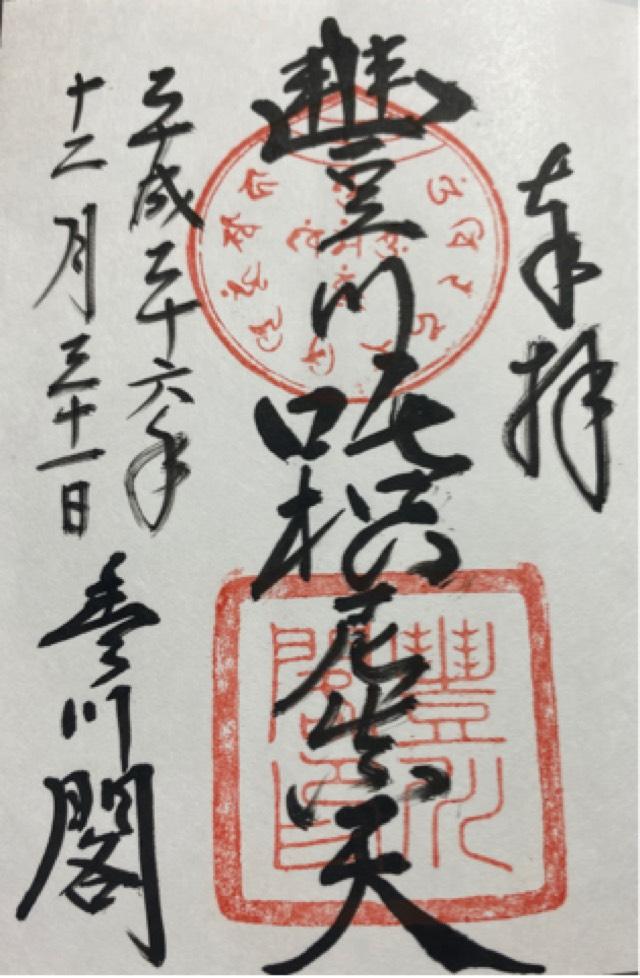 奉拝
豐川吒枳尼眞天
平成二十六年
十二月三十一日
豊川閣
豐川
閣印